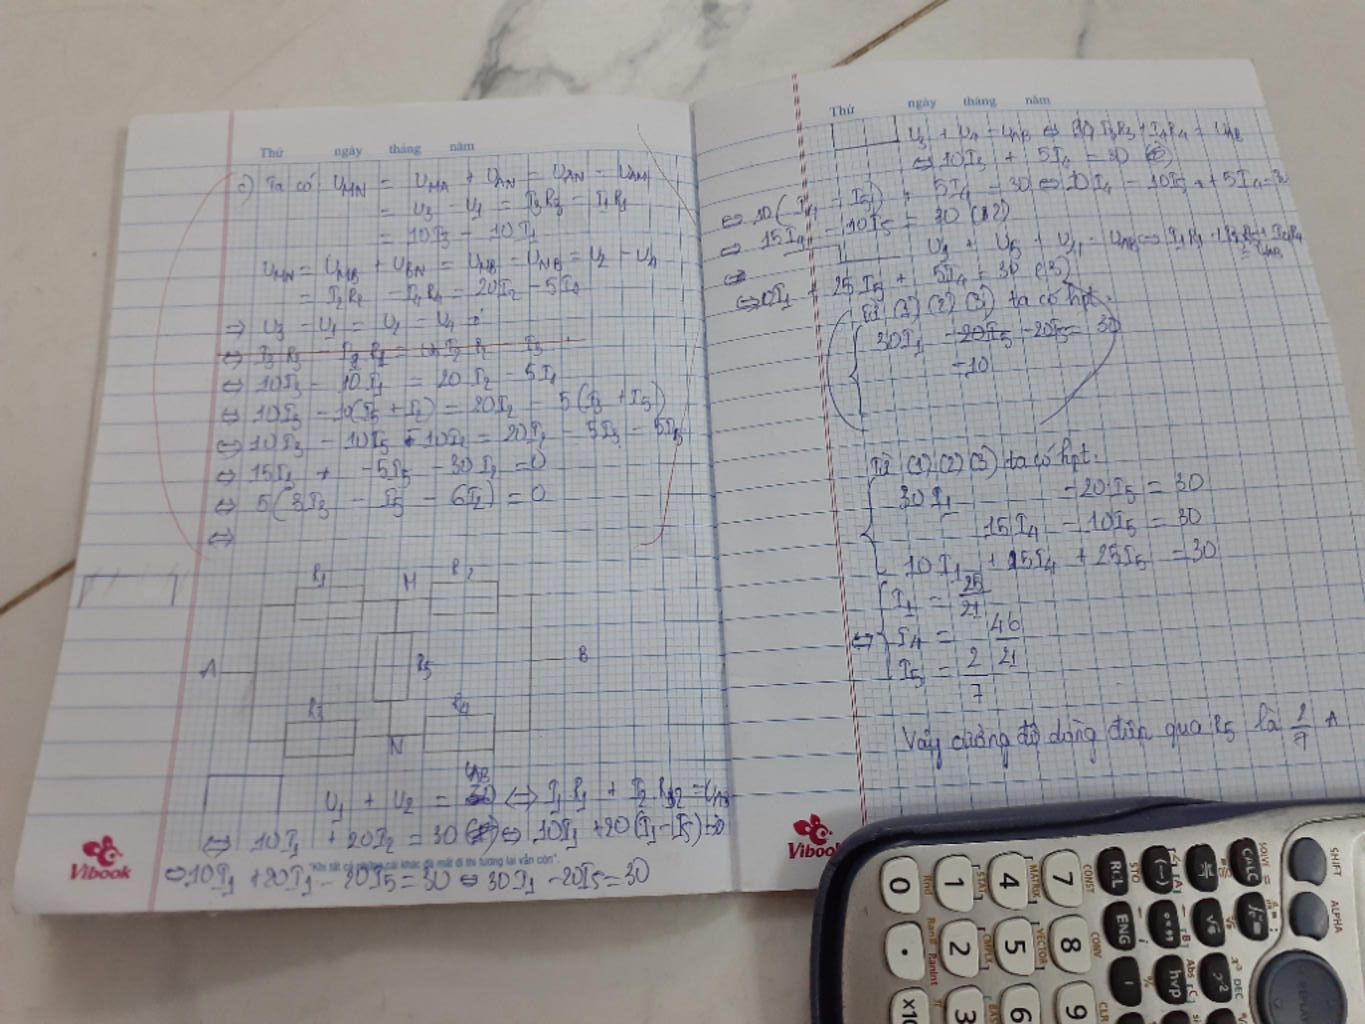 Thứ ngày tháng năm
c) Ta có U_MN = U_MA + U_AN = U_AN - U_AM
= U3 - U1 = I3R3 - I1R1
= 10I3 - 10I1
U_MN = U_MB + U_BN = U_MB - U_NB = U2 - U4
= I2R2 - I4R4 = 20I2 - 5I4
⇒ U3 - U1 = U2 - U4
⇔ I3R3
⇔ 10I3 - 10I1 = 20I2 - 5I4
⇔ 10I3 - 10(I5 + I2) = 20I2 - 5(I3 + I5)
⇔ 10I3 - 10I5 - 10I2 = 20I2 - 5I3 - 5I5
⇔ 15I3 + -5I5 - 30I2 = 0
⇔ 5(3I3 - I5 - 6I2) = 0
⇔
R1 M R2
A R5 B
R3 N R4
U1 + U2 = U_AB ⇔ I1.R1 + I2.R2 = U_AB
⇔ 10I1 + 20I2 = 30 ⇔ 10I1 + 20(I1 - I5) = 30
⇔ 10I1 + 20I1 - 20I5 = 30 ⇔ 30I1 - 20I5 = 30
Vibook
"Khi tất cả những cái khác đã mất đi thì tương lai vẫn còn".
Thứ ngày tháng năm
U3 + U4 = U_AB ⇔ I3R3 + I4R4 = U_AB
⇔ 10I3 + 5I4 = 30
⇔ 10(I4 - I5) + 5I4 = 30 ⇔ 10I4 - 10I5 + 5I4 = 30
⇔ 15I4 - 10I5 = 30 (2)
U1 + U5 + U4 = U_AB ⇔ I1R1 + I5R5 + I4R4 = U_AB
⇔
⇔ 10I1 + 25I5 + 5I4 = 30 (3)
Từ (1) (2) (3) ta có hpt:
30I1 - 20I5 = 30
-10
Từ (1) (2) (3) ta có hpt:
30I1 - 20I5 = 30
15I4 - 10I5 = 30
10I1 + 5I4 + 25I5 = 30
I1 = 25/21
⇔ I4 = 46/21
I5 = 2/7
Vậy cường độ dòng điện qua R5 là 2/7 A
Vibook
SHIFT ALPHA
SOLVE = CALC
RCL STO
(-)
ENG
hyp
CONST CONV CLR
MATRIX VECTOR
STAT CMPLX BASE
Rnd Ran# RanInt
7 8 9
4 5 6
1 2 3
0 . x10
REPLAY